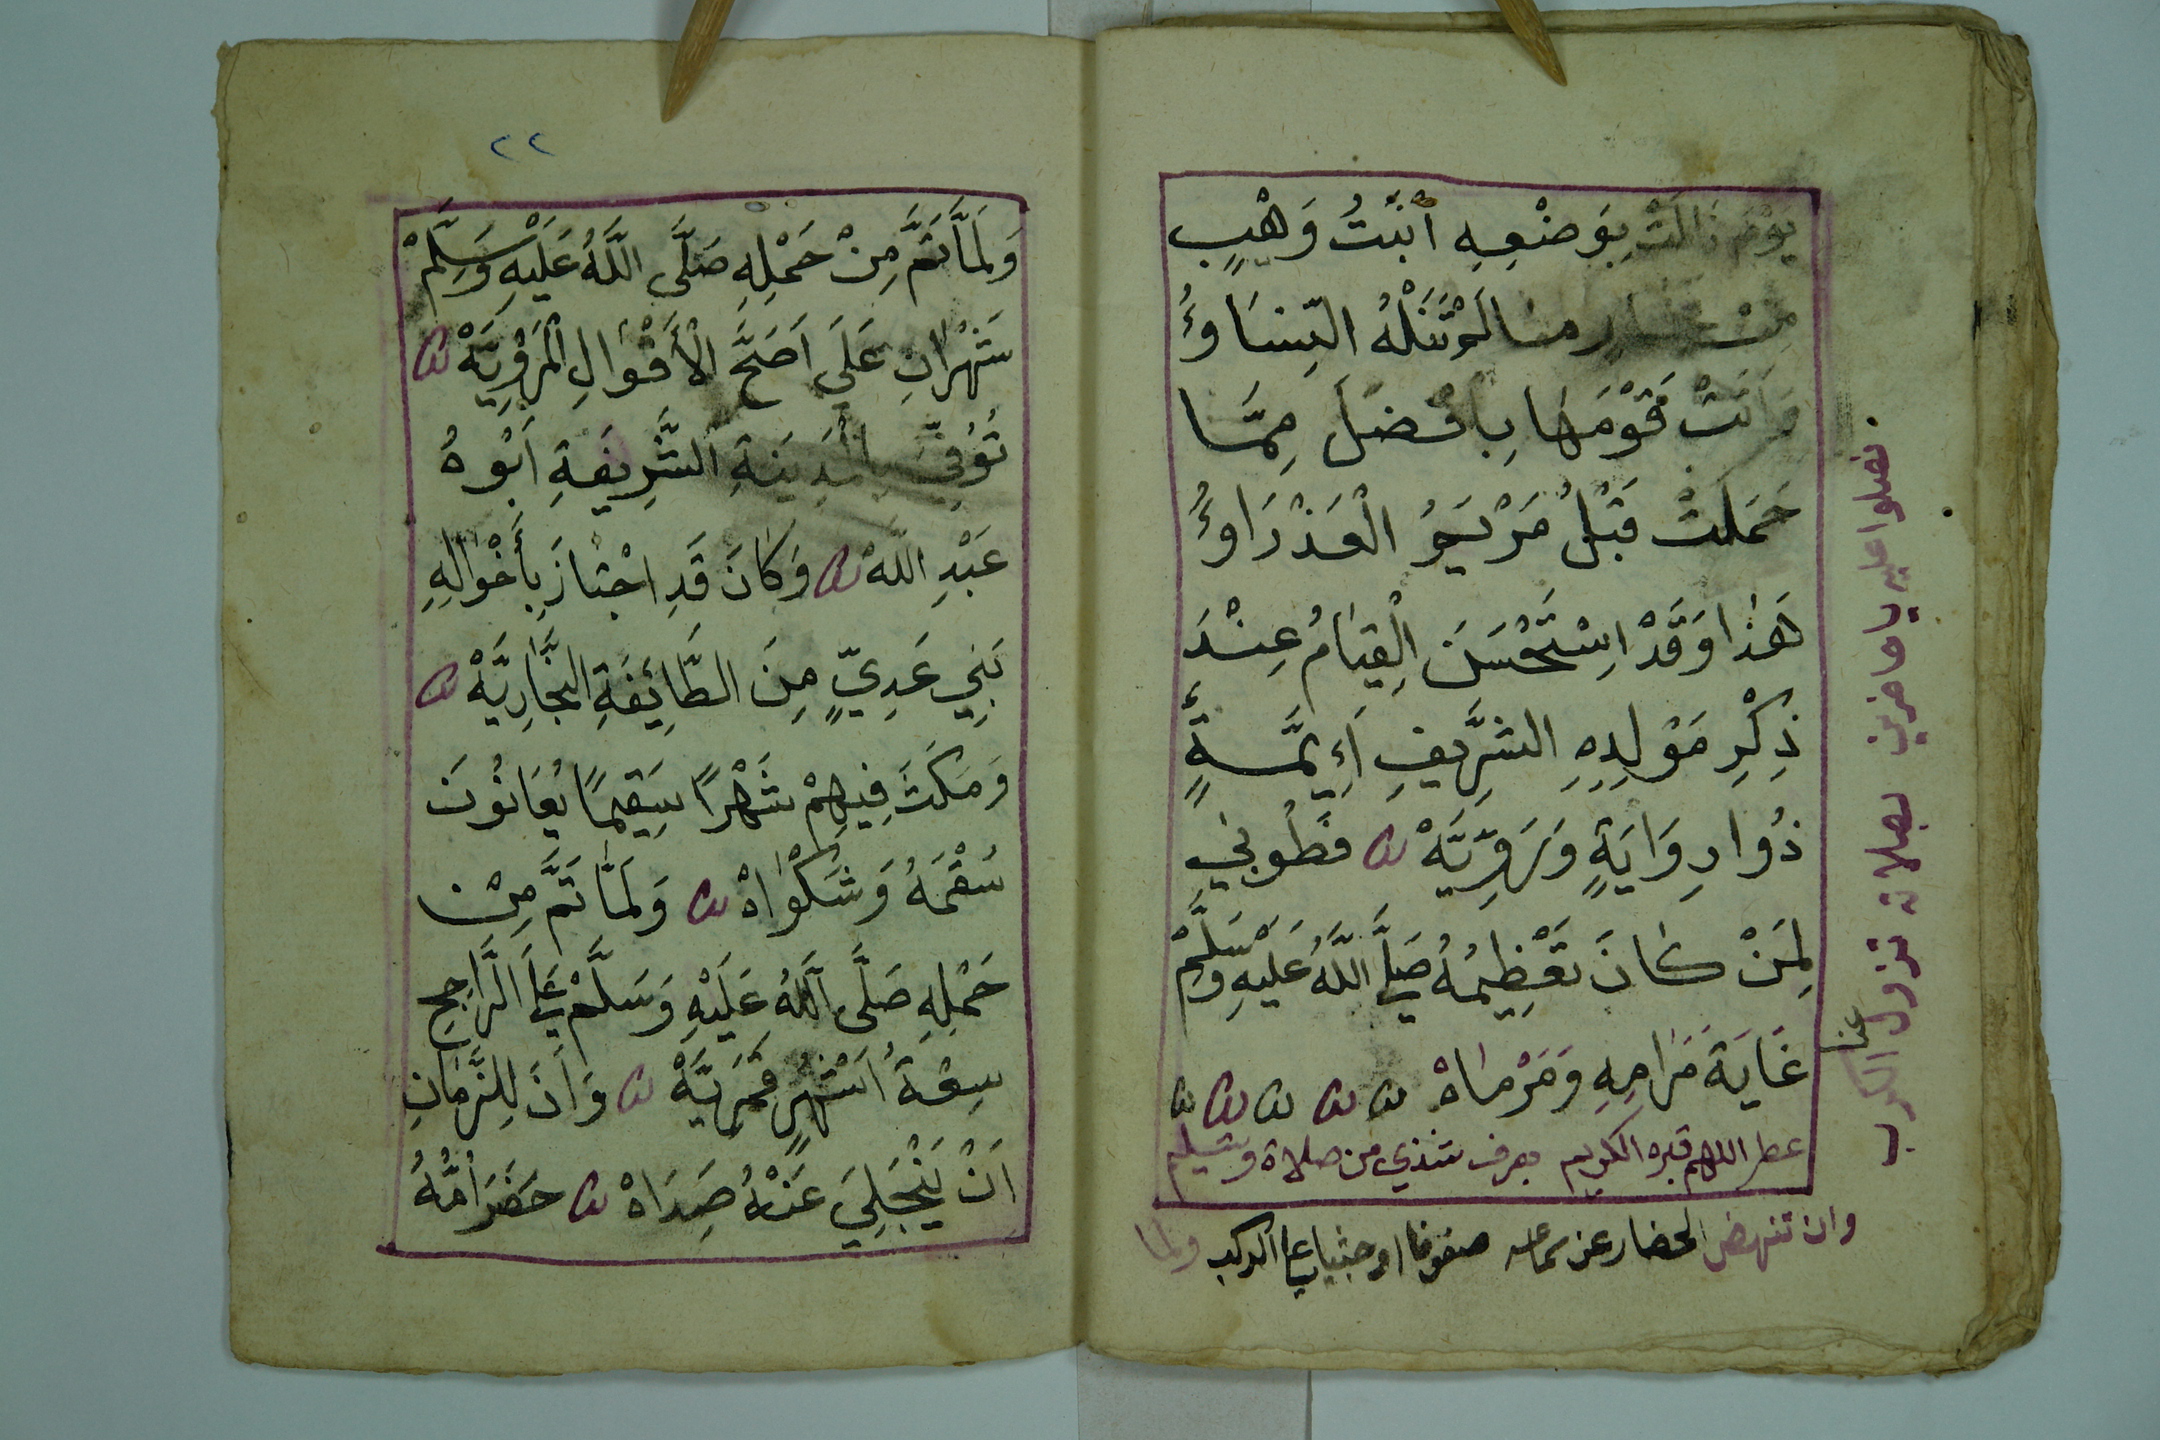 يَوْمَ نَالَتْ بِوَضْعِهِ ابْنَتُ وَهْبٍ
مِنْ فَخَارٍ مَا لَمْ تَنَلْهُ النِّسَاؤُ
وَاَتَتْ قَوْمَهَا بِاَفْضَلَ مِمَّا
حَمَلَتْ قَبْلُ مَرْيَمُ الْعَذْرَاؤُ
هَذَا وَقَدْ اِسْتَحْسَنَ الْقِيَامُ عِنْدَ
ذِكْرِ مَوْلِدِهِ الشَّرِيفِ اَئِيمَّةٌ
ذُوا رِوَايَةٍ وَرَوِيَّهْ فَطُوبَى
لِمَنْ كَانَ تَعْظِيمُهُ صَلَّى اللَّهُ عَلَيْهِ وَسَلَّمْ
غَايَةَ مَرَامِهِ وَمَرْمَاهْ
عطر اللهم قبره الكريم بعرف شذي من صلاة وتسليم
وان تنهض الحضار عن صفوفا او حثيا على الركب
ولما
فصلوا عليه يا حاضرين بصلاته تزول الكرب
عن
٢٢
وَلَمَّا تَمَّ مِنْ حَمْلِهِ صَلَّى اللَّهُ عَلَيْهِ وَسَلَّمْ
شَهْرَانِ عَلَى اَصَحَّ الْأَقْوَالِ الْمَرْوِيَّهْ
تُوُفِّيَ بِالْمَدِينَةِ الشَّرِيفَةِ اَبُوهُ
عَبْدِ اللَّهْ وَكَانَ قَدِ اجْتَازَ بِأَخْوَالِهِ
بَنِي عَدِيٍّ مِنَ الطَّائِفَةِ النَّجَّارِيَّهْ
وَمَكَثَ فِيهِمْ شَهْرًا سَقِيمًا يُعَانُونَ
سُقْمَهُ وَشَكْوَاهْ وَلَمَّا تَمَّ مِنْ
حَمْلِهِ صَلَّى اللَّهُ عَلَيْهِ وَسَلَّمْ عَلَى الرَّاجِحِ
تِسْعَةُ اَشْهُرٍ قَمَرِيَّهْ وَاَنَ لِلزَّمَانِ
اَنْ يَنْجَلِيَ عَنْهُ صِدَاهْ حَضَرَ اُمَّهُ